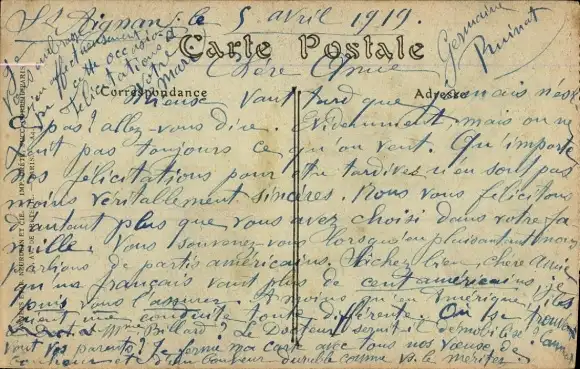 St Aignan, le 5 avril 1919.
Carte Postale
Germaine
Pruinat
Je vous embrasse
bien affectueusement
cette occasion
Félicitations à
Marc
Chère Amie
Correspondance
Adresse
Mieux vaut tard que jamais n'est
pas? allez-vous dire. Evidemment mais on ne
fait pas toujours ce qu'on veut. Qu'importe
nos félicitations pour être tardives n'en sont pas
moins véritablement sincères. Nous vous félicitons
d'autant plus que vous avez choisi dans votre fa
mille. Vous souvenez-vous lorsqu'en plaisantant nous
parlions de partis américains. Sachez bien, chère Amie
qu'un français vaut plus de cent américains, je
puis vous l'assurer. A moins qu'en Amérique, ils
aient une conduite toute différente. Où se trouve
Mme Billard? Le Docteur serait-il démobilisé?
vont vos parents? Je ferme ma carte avec tous nos vœux de
bonheur et d'un bonheur durable comme vs. le méritez.